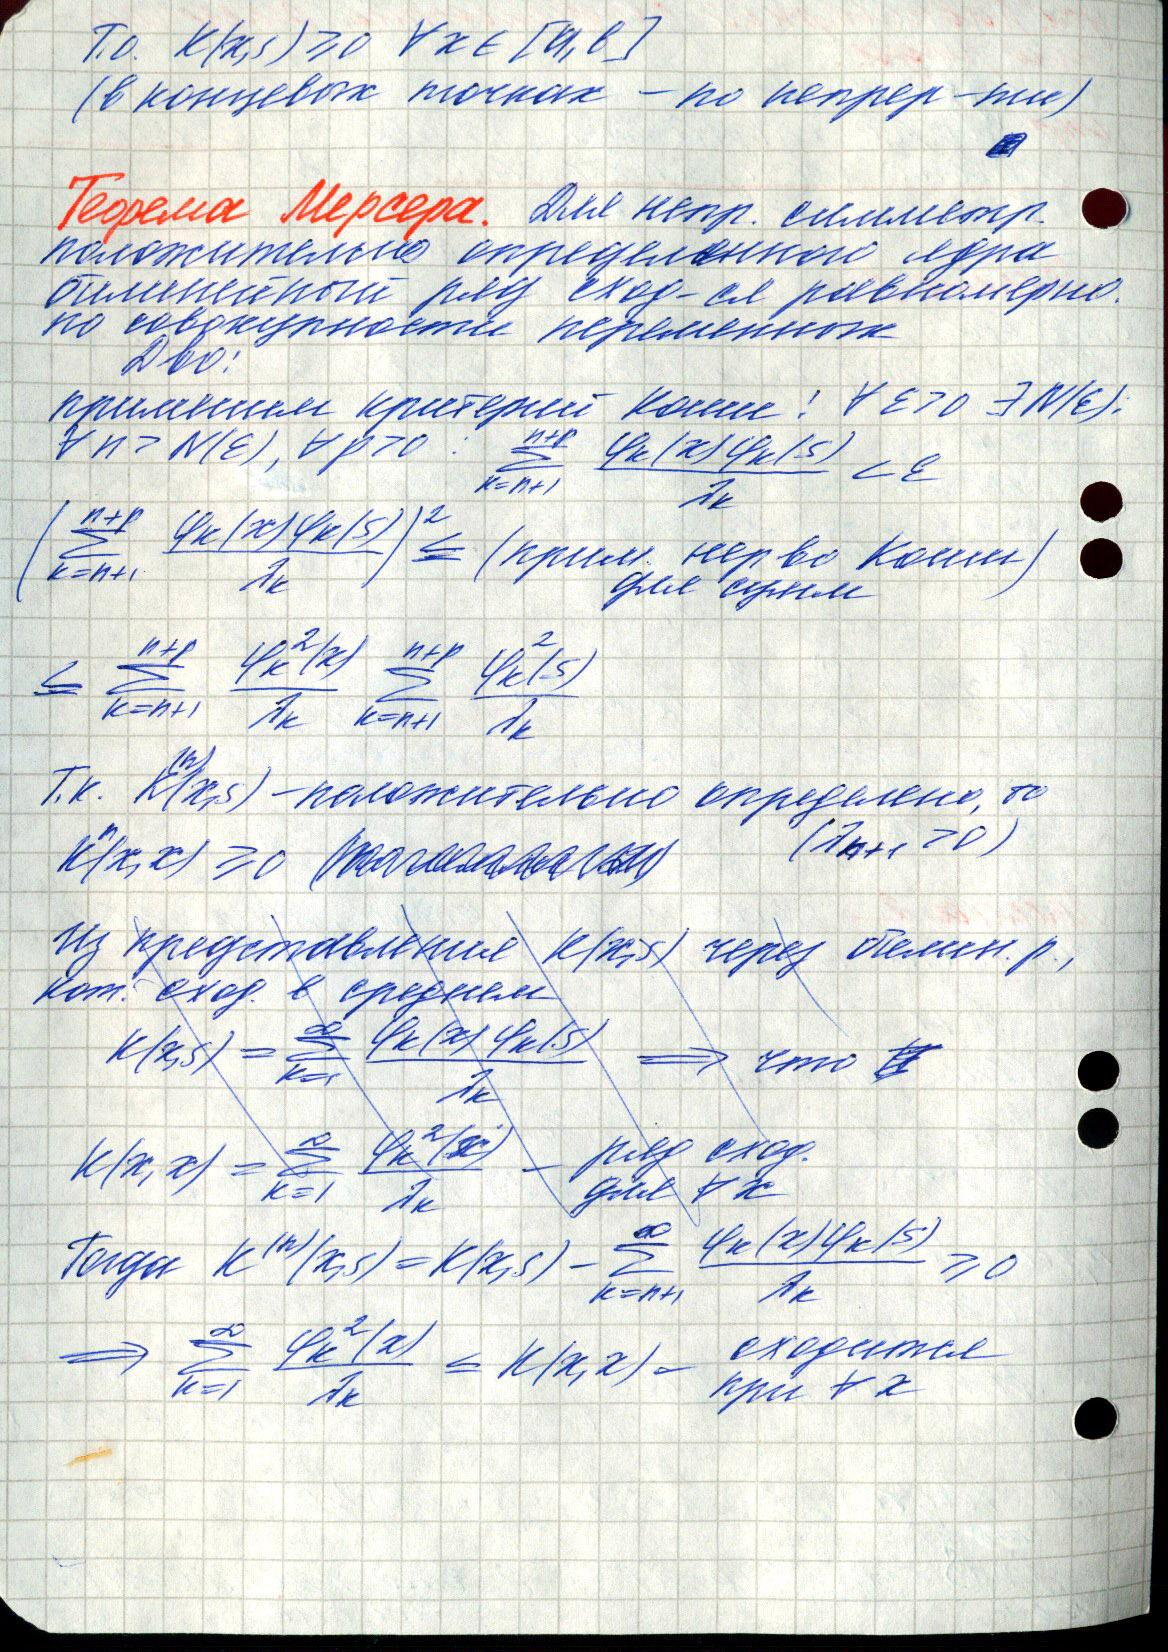 Т.о. K(x,s) ≥ 0 ∀x ∈ [a,b]
(в концевых точках – по непрер-ти)
Теорема Мерсера. Для непр. симметр.
положительно определенного ядра
билинейный ряд сход-ся равномерно.
по совокупности переменных
Д-во:
применим критерий Коши: ∀ε>0 ∃N(ε):
∀n > N(ε), ∀p>0 : ∑_{k=n+1}^{n+p} φ_k(x)φ_k(s)/λ_k < ε
(∑_{k=n+1}^{n+p} φ_k(x)φ_k(s)/λ_k)^2 ≤ (прим. нер-во Коши
для сумм)
≤ ∑_{k=n+1}^{n+p} φ_k^2(x)/λ_k ∑_{k=n+1}^{n+p} φ_k^2(s)/λ_k
Т.к. K^{(n)}(x,s) – положительно определено, то
K^n(x,x) ≥ 0 (λ_{n+1} > 0)
Из представления K(x,s) через билин. р.,
кот. сход. в среднем
K(x,s) = ∑_{k=1}^∞ φ_k(x)φ_k(s)/λ_k ⟹ что
K(x,x) = ∑_{k=1}^∞ φ_k^2(x)/λ_k – ряд сход.
для ∀x
Тогда K^{(n)}(x,s) = K(x,s) – ∑_{k=n+1}^∞ φ_k(x)φ_k(s)/λ_k ≥ 0
⟹ ∑_{k=1}^∞ φ_k^2(x)/λ_k ≤ K(x,x) – сходится
при ∀x